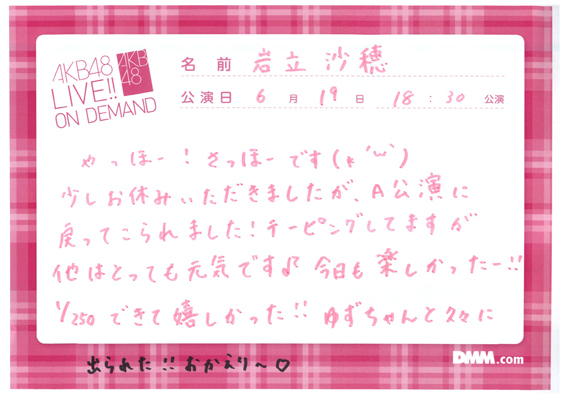 AKB48
LIVE!!
ON DEMAND
AKB
48
名前 岩立 沙穂
公演日 6月19日 18:30公演
やっほー！さっほーです(*´ω`)
少しお休みいただきましたが、A公演に
戻ってこられました！テーピングしてますが
他はとっても元気です♪ 今日も楽しかったー!!
1/250 できて嬉しかった!! ゆずちゃんと久々に
出られた!! おかえり〜♡
DMM.com